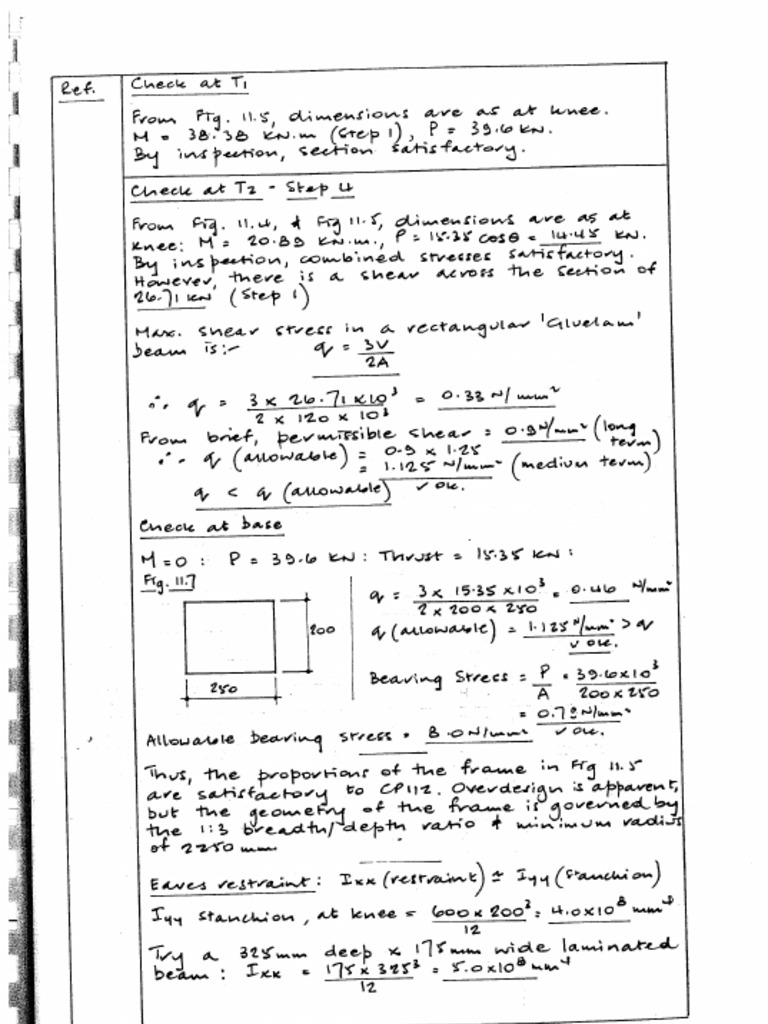 Ref.
Check at T1
From Fig. 11.5, dimensions are as at knee.
M = 38.38 kN.m (Step 1), P = 39.6 kN.
By inspection, section satisfactory.
Check at T2 - Step 4
From Fig. 11.4, & Fig 11.5, dimensions are as at
knee: M = 20.89 kN.m., P = 15.35 cosθ = 14.45 kN.
By inspection, combined stresses satisfactory.
However, there is a shear across the section of
26.71 kN (Step 1)
Max. shear stress in a rectangular 'Gluelam'
beam is:- q = 3V/2A
∴ q = 3 x 26.71 x 10³ / 2 x 120 x 10³ = 0.33 N/mm²
From brief, permissible shear = 0.9 N/mm² (long term)
∴ q (allowable) = 0.9 x 1.25
= 1.125 N/mm² (medium term)
q < q (allowable) ✓ OK.
Check at base
M = 0 : P = 39.6 kN : Thrust = 15.35 kN :
Fig. 11.7
200
250
q = 3 x 15.35 x 10³ / 2 x 200 x 250 = 0.46 N/mm²
q (allowable) = 1.125 N/mm² > q
✓ OK.
Bearing Stress = P/A = 39.6x10³ / 200 x 250
= 0.79 N/mm²
✓ OK.
Allowable bearing stress = 8.0 N/mm²
Thus, the proportions of the frame in Fig 11.5
are satisfactory to CP112. Overdesign is apparent,
but the geometry of the frame is governed by
the 1:3 breadth/depth ratio & minimum radius
of 2250 mm.
Eaves restraint: Ixx (restraint) ≃ Iyy (Stanchion)
Iyy stanchion, at knee = 600 x 200³ / 12 = 4.0x10⁸ mm⁴
Try a 325mm deep x 175mm wide laminated
beam : Ixx = 175 x 325³ / 12 = 5.0x10⁸ mm⁴